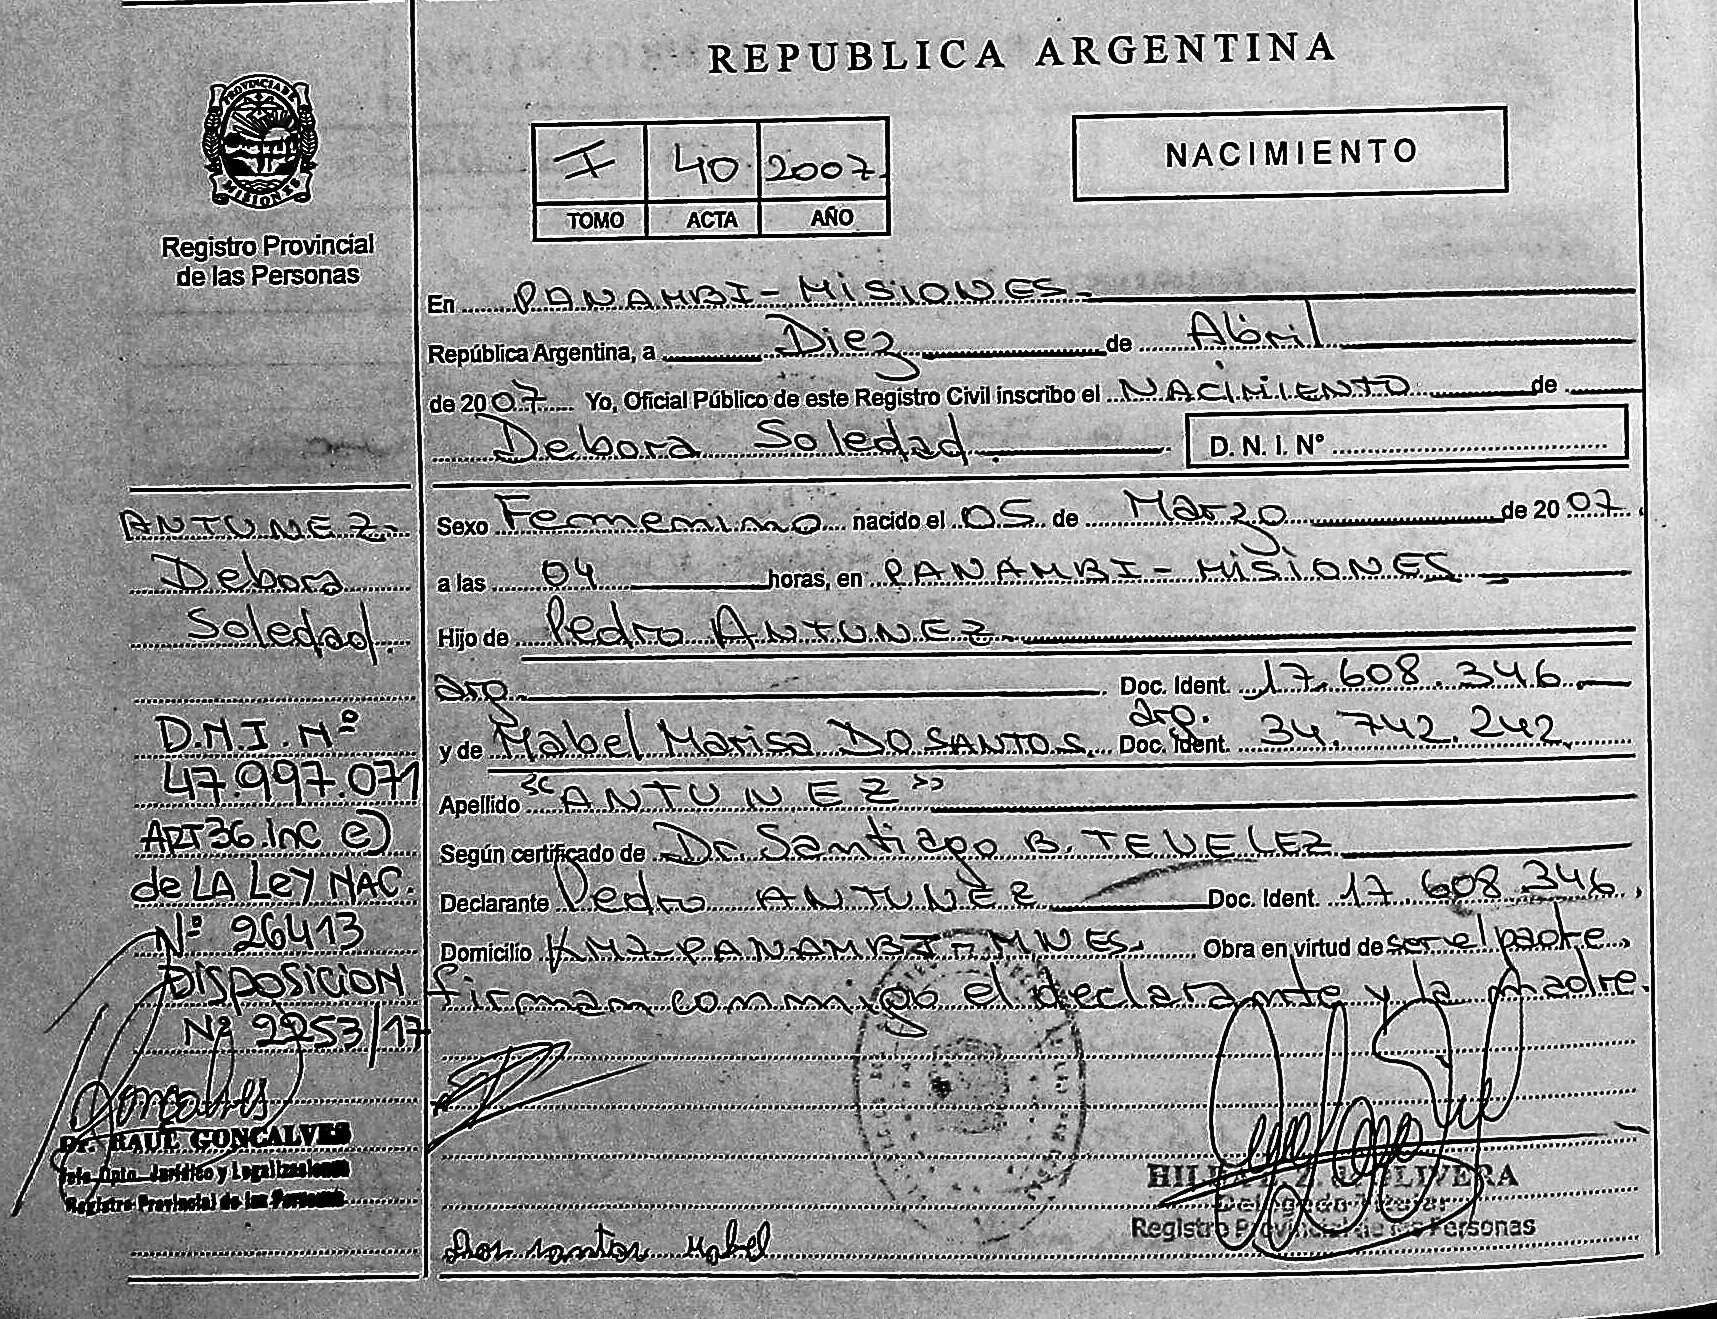 REPUBLICA ARGENTINA
PROVINCIA DE
MISIONES
Registro Provincial
de las Personas
I 40 2007
TOMO ACTA AÑO
NACIMIENTO
En PANAMBI - MISIONES
República Argentina, a Diez de Abril
de 2007 Yo, Oficial Público de este Registro Civil inscribo el NACIMIENTO de
Debora Soledad D. N. I. Nº
Sexo Femenino nacido el 05 de Marzo de 2007
a las 04 horas, en PANAMBI - MISIONES
Hijo de Pedro ANTUNEZ
arg. Doc. Ident. 17.608.346
arg.
y de Mabel Marisa DO SANTOS Doc. Ident. 34.742.242
Apellido "ANTUNEZ"
Según certificado de Dr. Santiago B. TEVELEZ
Declarante Pedro ANTUNEZ Doc. Ident. 17.608.346
Domicilio KM2-PANAMBI-MNES. Obra en virtud de ser el padre,
firman conmigo el declarante y la madre.
ANTUNEZ
Debora
Soledad
D.N.I. Nº
47.997.071
ART 36. inc e)
de LA LEY NAC.
Nº 26413
DISPOSICION
Nº 2253/17
Dr. RAUL GONCALVES
Jefe Dpto. Jurídico y Legalizaciones
Registro Provincial de las Personas
Dos santos Mabel
Registro Provincial de las Personas